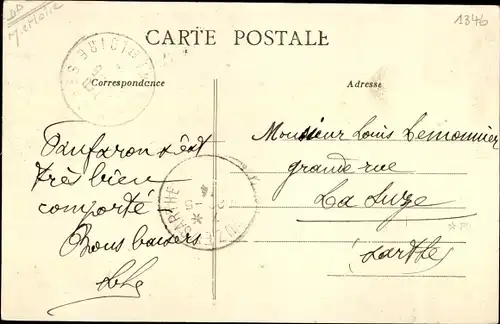 1346
CARTE POSTALE
Correspondance
Adresse
Fanfaron s'est
très bien
comporté
Bons baisers
Monsieur Louis Lemonnier
grande rue
La Suze
Sarthe
SARTHE